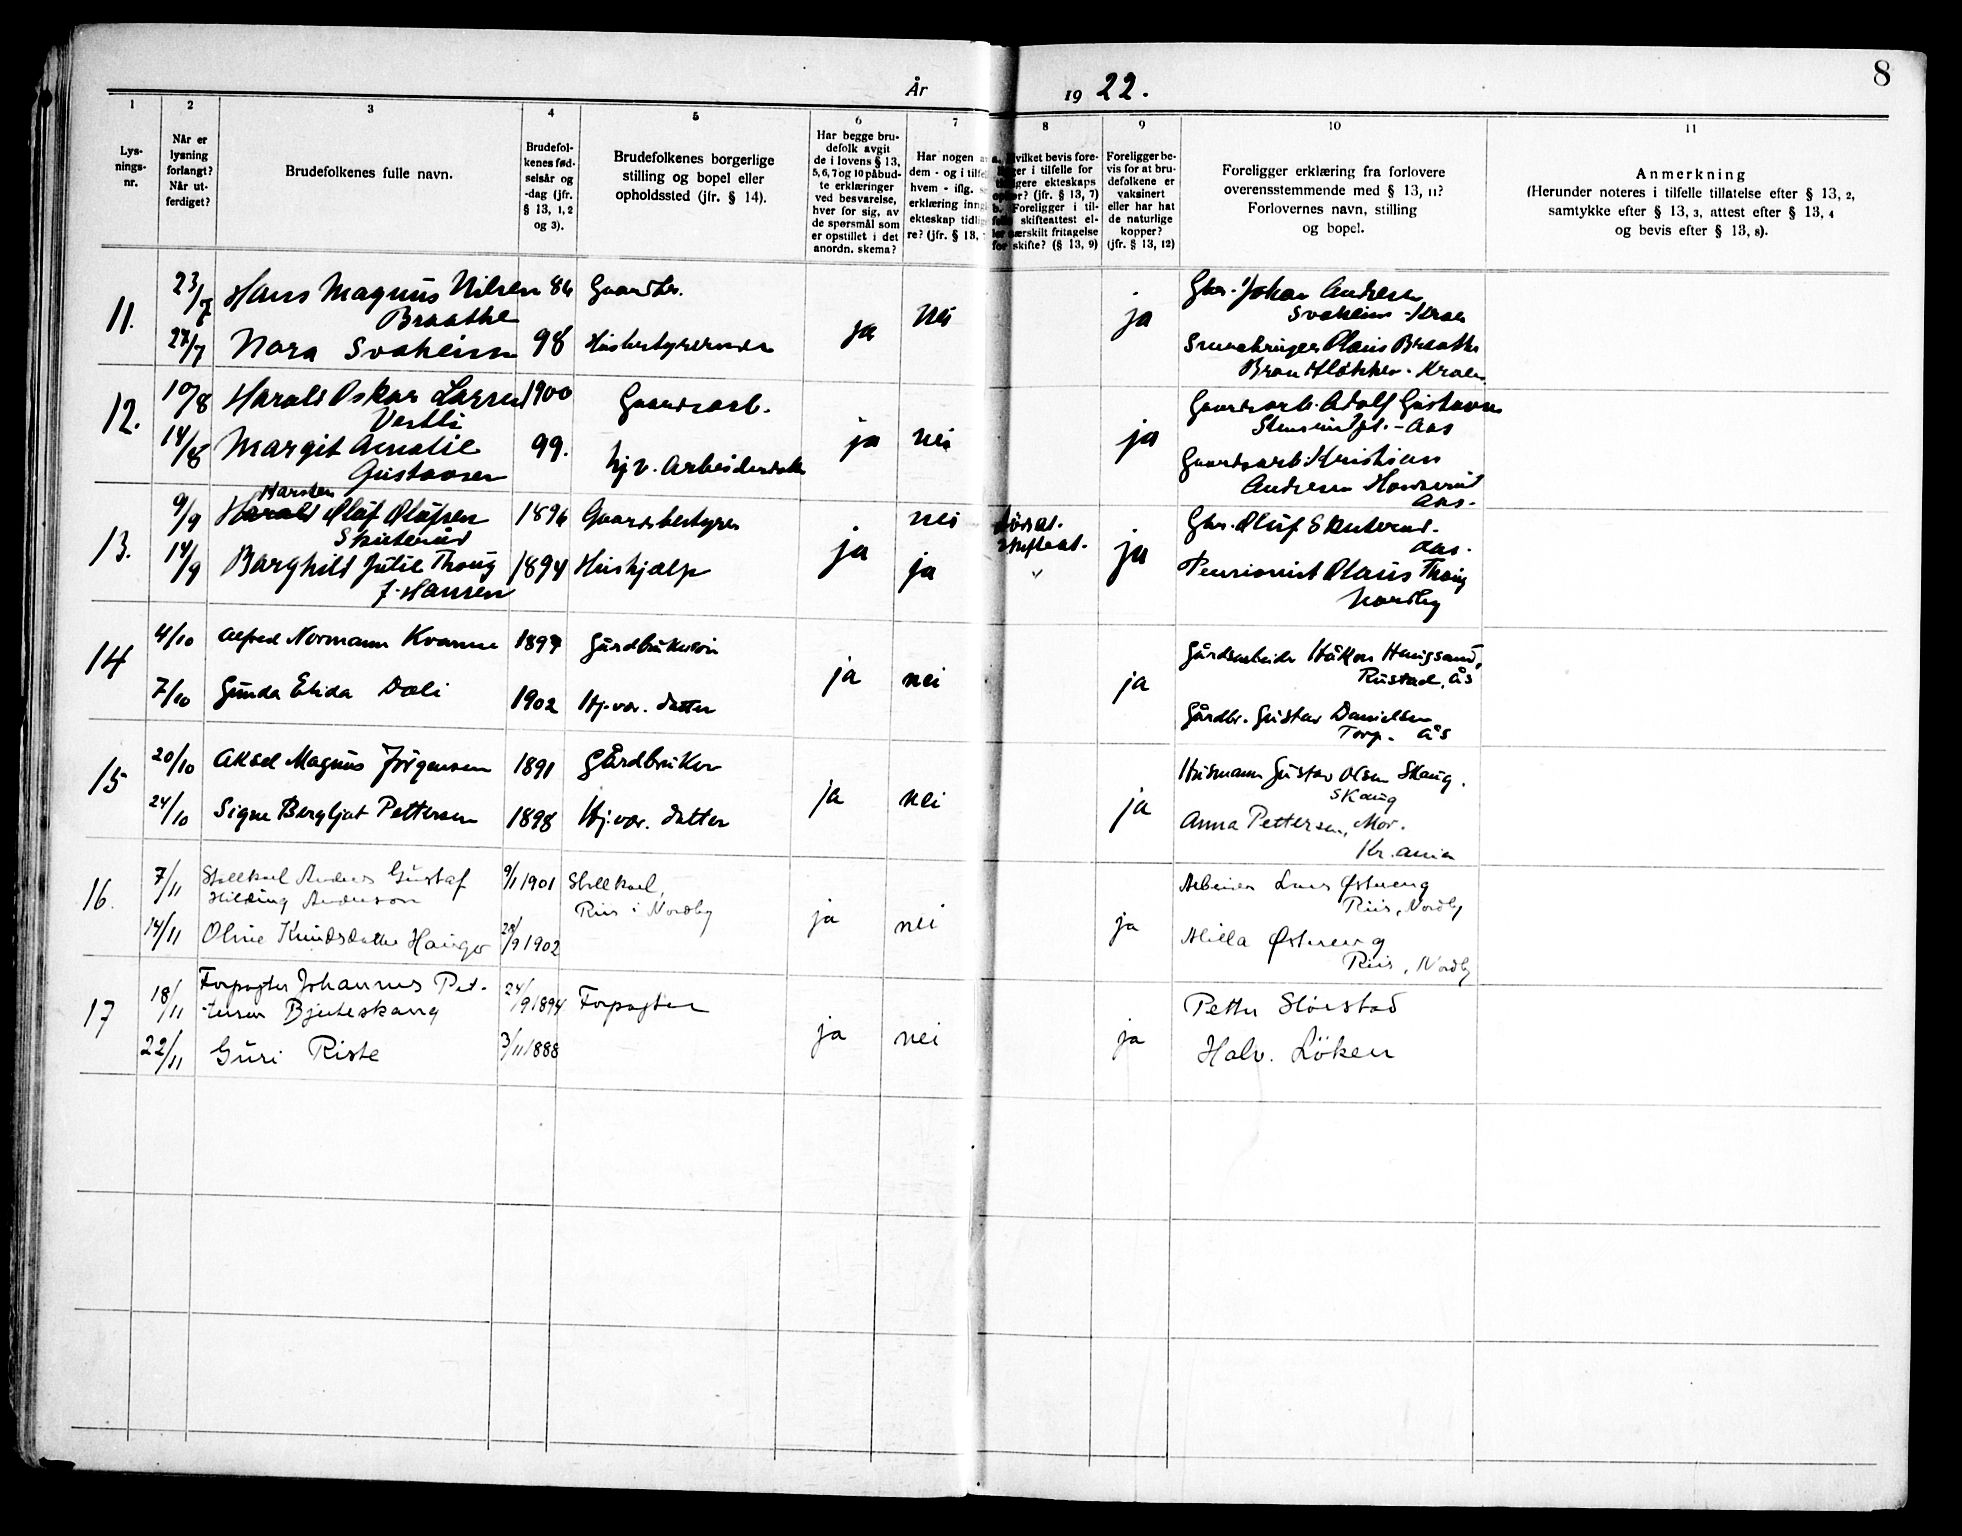 8
År 1922.
1 2 3 4 5 6 7 8 9 10 11
Lys-
nings-
nr.
Når er
lysning
forlangt?
Når ut-
ferdiget?
Brudefolkenes fulle navn.
Brudefol-
kenes fød-
selsår og
-dag (jfr.
§ 13, 1, 2
og 3).
Brudefolkenes borgerlige
stilling og bopel eller
opholdssted (jfr. § 14).
Har begge bru-
defolk avgit
de i lovens § 13,
5, 6, 7 og 10 påbud-
te erklæringer
ved besvarelse,
hver for sig, av
de spørsmål som
er opstillet i det
anordn. skema?
Har nogen a
dem - og i tilfel
hvem - iflg.
erklæring inng
ekteskap tidlig
re? (jfr. § 13,
hvilket bevis fore-
ger i tilfelle for
ligere ekteskaps
ophør? (jfr. § 13, 7)
b. Foreligger i til-
felle skifteattest el-
ler særskilt fritagelse
for skifte? (§ 13, 9)
Foreligger be-
vis for at bru-
defolkene er
vaksinert
eller har hat
de naturlige
kopper?
(jfr. § 13, 12)
Foreligger erklæring fra forlovere
overensstemmende med § 13, 11?
Forlovernes navn, stilling
og bopel.
Anmerkning
(Herunder noteres i tilfelle tillatelse efter § 13, 2,
samtykke efter § 13, 3, attest efter § 13, 4
og bevis efter § 13, 8).
11. 23/7 Hans Magnus Nilsen 86 Gaardbr.
Braathe
27/7 Nora Svaheim 98 Husbestyrerinde ja nei ja
Gbr. Johan Andresen
Svaheim - Kraer
Smaabruger Olaus Braathe
Braathe - Kraer
12. 10/8 Harald Oskar Larsen 1900 Gaardsarb.
Vestli
14/8 Margit Amalie 99. hj.v. Arbeiderdatter ja nei ja
Gustavsen
Gaardsarb. Adolf Gustavsen
- Aas
Gaardsarb. Kristian
Andresen
Aas.
13. 9/9 Harald Karsten Oluf Olufsen 1896 Gaardsbestyrer nei
Skuterud
14/9 Borghild Julie Thoug 1894 Hushjælp ja ja ja
f. Hansen
dødsat.
skifteat.
"
Gbr. Oluf Skuterud.
Aas.
Pensionist Olaus Thoug
Nordby
14 4/10 Alfred Normann Kvarme 1897 Gårdbrukersøn
7/10 Gunda Elida Dali 1902 Hj.vær. datter ja nei ja
Gårdsarbeider Håkon Haugsand,
Rustad, Ås
Gårdbr. Gustav Danielsen
Torp. Ås
15 20/10 Aksel Magnus Jørgensen 1891 Gårdbruker
24/10 Signe Bergljot Pettersen 1898 Hj.vær. datter ja nei ja
Husmann Gustav Olsen Skaug.
Skaug
Anna Pettersen, Mor.
Kr.ania
16. 7/11 Stallkarl Anders Gustaf 9/1 1901 Stallkarl,
Hilding Anderson Riis i Nordby
14/11 Oline Knudsdatter Hauger 28/9 1902 ja nei ja
Arbeider Lars Østreng
Riis, Nordby
Milla Østreng
Riis, Nordby
17 18/11 Forpagter Johannes Pet- 24/9 1894 Forpagter
tersen Bjerteskaug
22/11 Guri Riste 3/11 1888 ja nei ja
Petter Slørstad
Halv. Löken